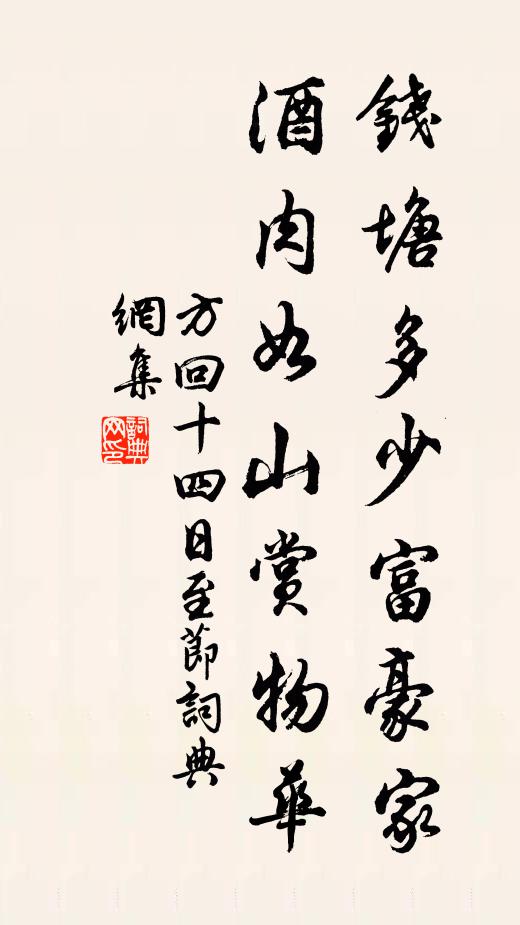 錢塘多少富豪家
酒肉如山賞物華
方回十四日至節詞典
網集
詞典
网印